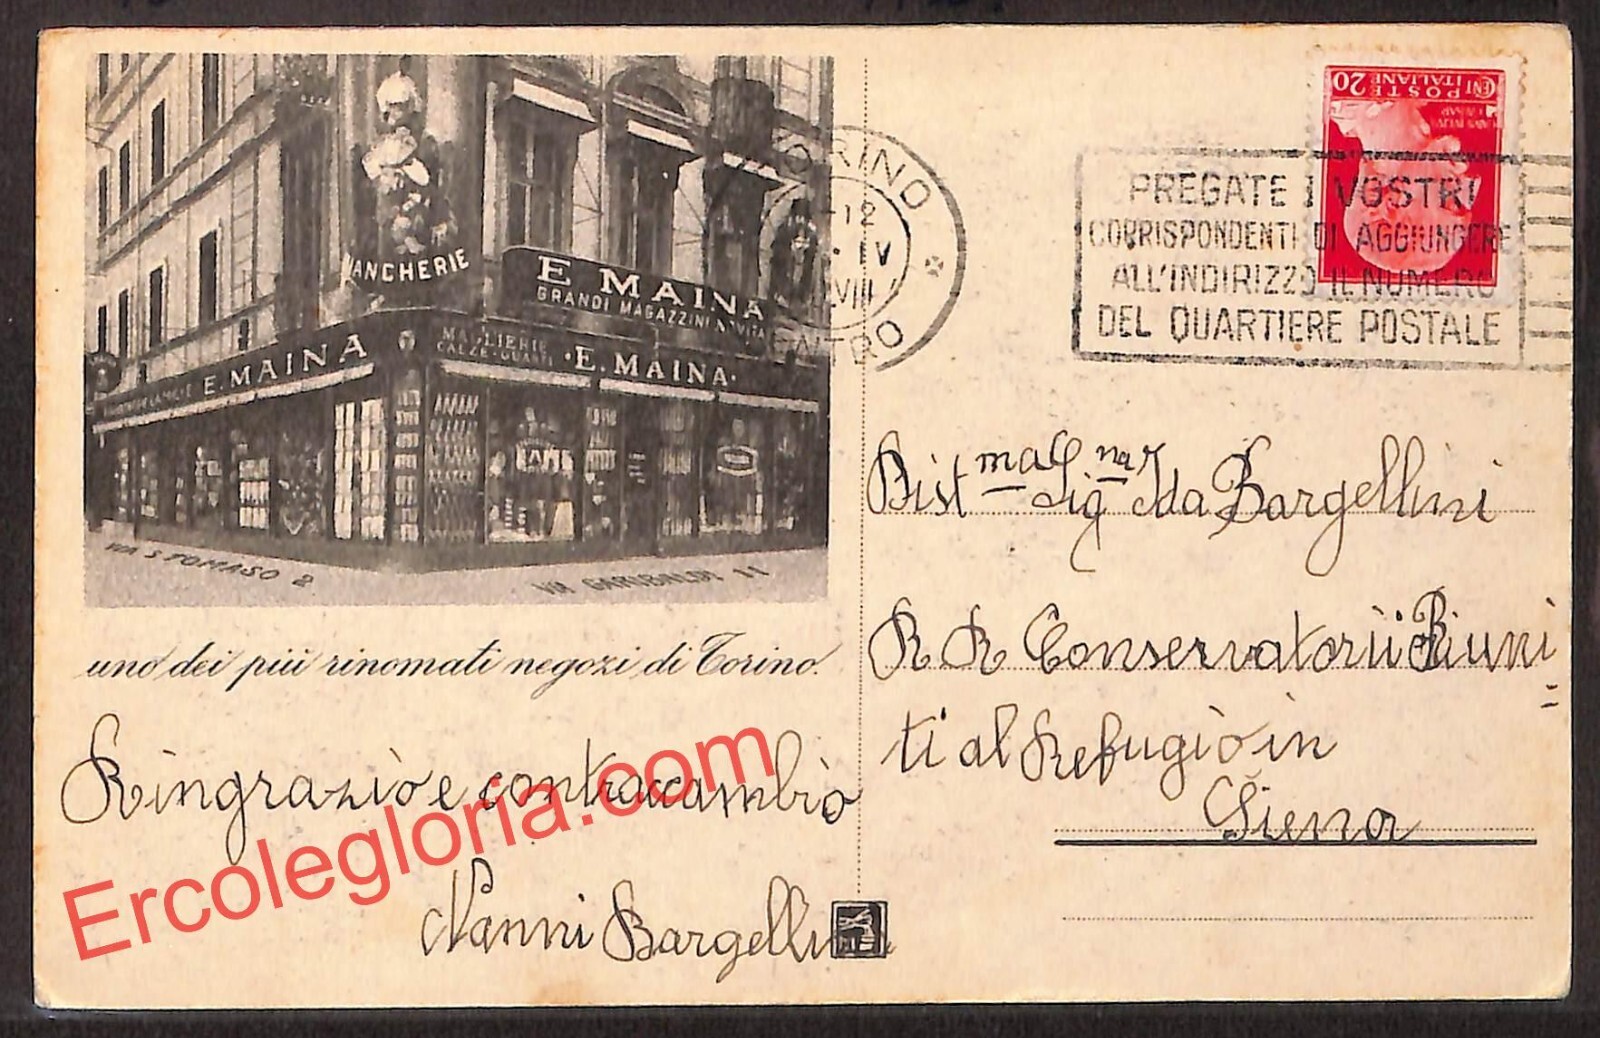 BIANCHERIE
E MAINA
GRANDI MAGAZZINI NOVITÀ
E. MAINA
MAGLIERIE
CALZE-GUANTI
·E. MAINA·
VIA S TOMASO 2
VIA GARIBALDI 11
uno dei più rinomati negozi di Torino.
Ringrazio e contraccambio
Nanni Bargellini
Ercolegloria.com
TORINO
-12
IV
VIII
CENTRO
PREGATE I VOSTRI
CORRISPONDENTI DI AGGIUNGERE
ALL'INDIRIZZO IL NUMERO
DEL QUARTIERE POSTALE
CENT 20
POSTE
ITALIANE
Distma Signa Ida Bargellini
R R Conservatorii Riuni=
ti al Refugio in
Siena